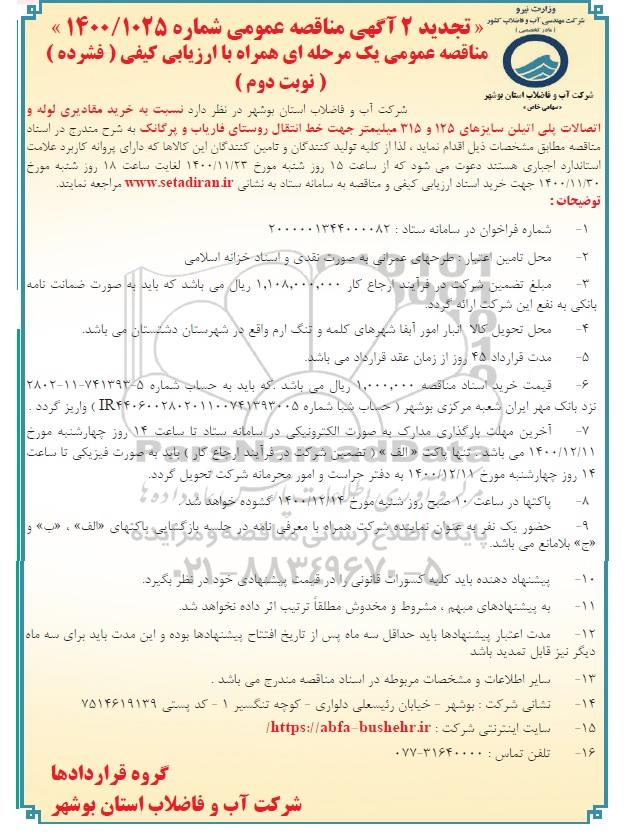 وزارت نیرو
شرکت مهندسی آب و فاضلاب کشور
( مادر تخصصی )
شرکت آب و فاضلاب استان بوشهر
«سهامی خاص»
« تجدید ۲ آگهی مناقصه عمومی شماره ۱۴۰۰/۱۰۲۵ »
مناقصه عمومی یک مرحله ای همراه با ارزیابی کیفی ( فشرده )
( نوبت دوم )
شرکت آب و فاضلاب استان بوشهر در نظر دارد نسبت به خرید مقادیری لوله و
اتصالات پلی اتیلن سایزهای ۱۲۵ و ۳۱۵ میلیمتر جهت خط انتقال روستای فاریاب و پرگانک به شرح مندرج در اسناد
مناقصه مطابق مشخصات ذیل اقدام نماید ، لذا از کلیه تولید کنندگان و تامین کنندگان این کالاها که دارای پروانه کاربرد علامت
استاندارد اجباری هستند دعوت می شود که از ساعت ۱۵ روز شنبه مورخ ۱۴۰۰/۱۱/۲۳ لغایت ساعت ۱۸ روز شنبه مورخ
۱۴۰۰/۱۱/۳۰ جهت خرید اسناد ارزیابی کیفی و مناقصه به سامانه ستاد به نشانی www.setadiran.ir مراجعه نمایند.
توضیحات :
۱- شماره فراخوان در سامانه ستاد : ۲۰۰۰۰۰۱۳۴۴۰۰۰۰۸۲
۲- محل تامین اعتبار : طرحهای عمرانی به صورت نقدی و اسناد خزانه اسلامی
۳- مبلغ تضمین شرکت در فرآیند ارجاع کار ۱,۱۰۸,۰۰۰,۰۰۰ ریال می باشد که باید به صورت ضمانت نامه
بانکی به نفع این شرکت ارائه گردد.
۴- محل تحویل کالا انبار امور آبفا شهرهای کلمه و تنگ ارم واقع در شهرستان دشتستان می باشد.
۵- مدت قرارداد ۴۵ روز از زمان عقد قرارداد می باشد.
۶- قیمت خرید اسناد مناقصه ۱,۰۰۰,۰۰۰ ریال می باشد .که باید به حساب شماره ۵-۷۴۱۳۹۳-۱۱-۲۸۰۲
نزد بانک مهر ایران شعبه مرکزی بوشهر ( حساب شبا شماره IR۴۴۰۶۰۰۲۸۰۲۰۱۱۰۰۷۴۱۳۹۳۰۰۵ ) واریز گردد .
۷- آخرین مهلت بارگذاری مدارک به صورت الکترونیکی در سامانه ستاد تا ساعت ۱۴ روز چهارشنبه مورخ
۱۴۰۰/۱۲/۱۱ می باشد . تنها پاکت « الف » ( تضمین شرکت در فرآیند ارجاع کار ) باید به صورت فیزیکی تا ساعت
۱۴ روز چهارشنبه مورخ ۱۴۰۰/۱۲/۱۱ به دفتر حراست و امور محرمانه شرکت تحویل گردد.
۸- پاکتها در ساعت ۱۰ صبح روز شنبه مورخ ۱۴۰۰/۱۲/۱۴ گشوده خواهد شد .
۹- حضور یک نفر به عنوان نماینده شرکت همراه با معرفی نامه در جلسه بازگشایی پاکتهای «الف» ، «ب» و
«ج» بلامانع می باشد.
۱۰- پیشنهاد دهنده باید کلیه کسورات قانونی را در قیمت پیشنهادی خود در نظر بگیرد.
۱۱- به پیشنهادهای مبهم ، مشروط و مخدوش مطلقاً ترتیب اثر داده نخواهد شد.
۱۲- مدت اعتبار پیشنهادها باید حداقل سه ماه پس از تاریخ افتتاح پیشنهادها بوده و این مدت باید برای سه ماه
دیگر نیز قابل تمدید باشد
۱۳- سایر اطلاعات و مشخصات مربوطه در اسناد مناقصه مندرج می باشد .
۱۴- نشانی شرکت : بوشهر - خیابان رئیسعلی دلواری - کوچه تنگسیر ۱ - کد پستی ۷۵۱۴۶۱۹۱۳۹
۱۵- سایت اینترنتی شرکت : https://abfa-bushehr.ir/
۱۶- تلفن تماس : ۳۱۶۴۰۰۰۰-۰۷۷
گروه قراردادها
شرکت آب و فاضلاب استان بوشهر
ParsNamadData
پایگاه اطلاع رسانی مناقصه و مزایده
۰۲۱-۸۸۳۴۹۶۷۰-۵